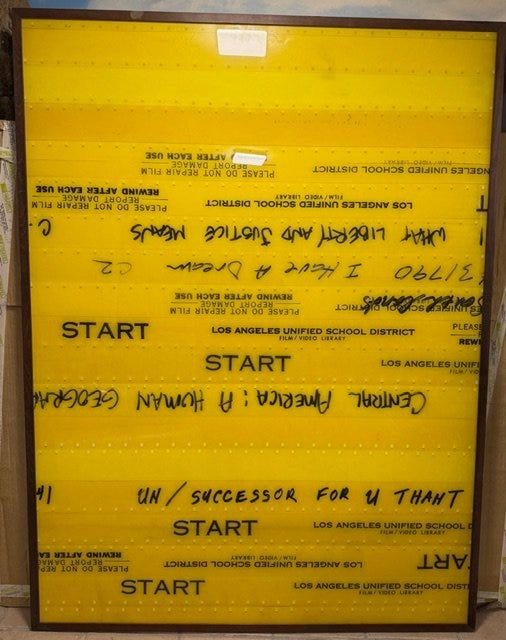 ANGELES UNIFIED SCHOOL DISTRICT
FILM/VIDEO LIBRARY
PLEASE DO NOT REPAIR FILM
REPORT DAMAGE
REWIND AFTER EACH USE
LOS ANGELES UNIFIED SCHOOL DISTRICT
FILM/VIDEO LIBRARY
PLEASE DO NOT REPAIR FILM
REPORT DAMAGE
REWIND AFTER EACH USE
WHAT LIBERTY AND JUSTICE MEANS C.
31790 I Have A Dream C2
UNIFIED SCHOOL DISTRICT
PLEASE DO NOT REPAIR FILM
REPORT DAMAGE
REWIND AFTER EACH USE
START LOS ANGELES UNIFIED SCHOOL DISTRICT
FILM/VIDEO LIBRARY
PLEASE
REWI
START LOS ANGELES UNIF
FILM/V
CENTRAL AMERICA: A HUMAN GEOGRA
UN/SUCCESSOR FOR U THANT
START LOS ANGELES UNIFIED SCHOOL D
FILM/VIDEO LIBRARY
ART LOS ANGELES UNIFIED SCHOOL DISTRICT
FILM/VIDEO LIBRARY
PLEASE DO NOT REP
REPORT DAMA
REWIND AFTER EA
START LOS ANGELES UNIFIED SCHOOL DIST
FILM/VIDEO LIBRARY